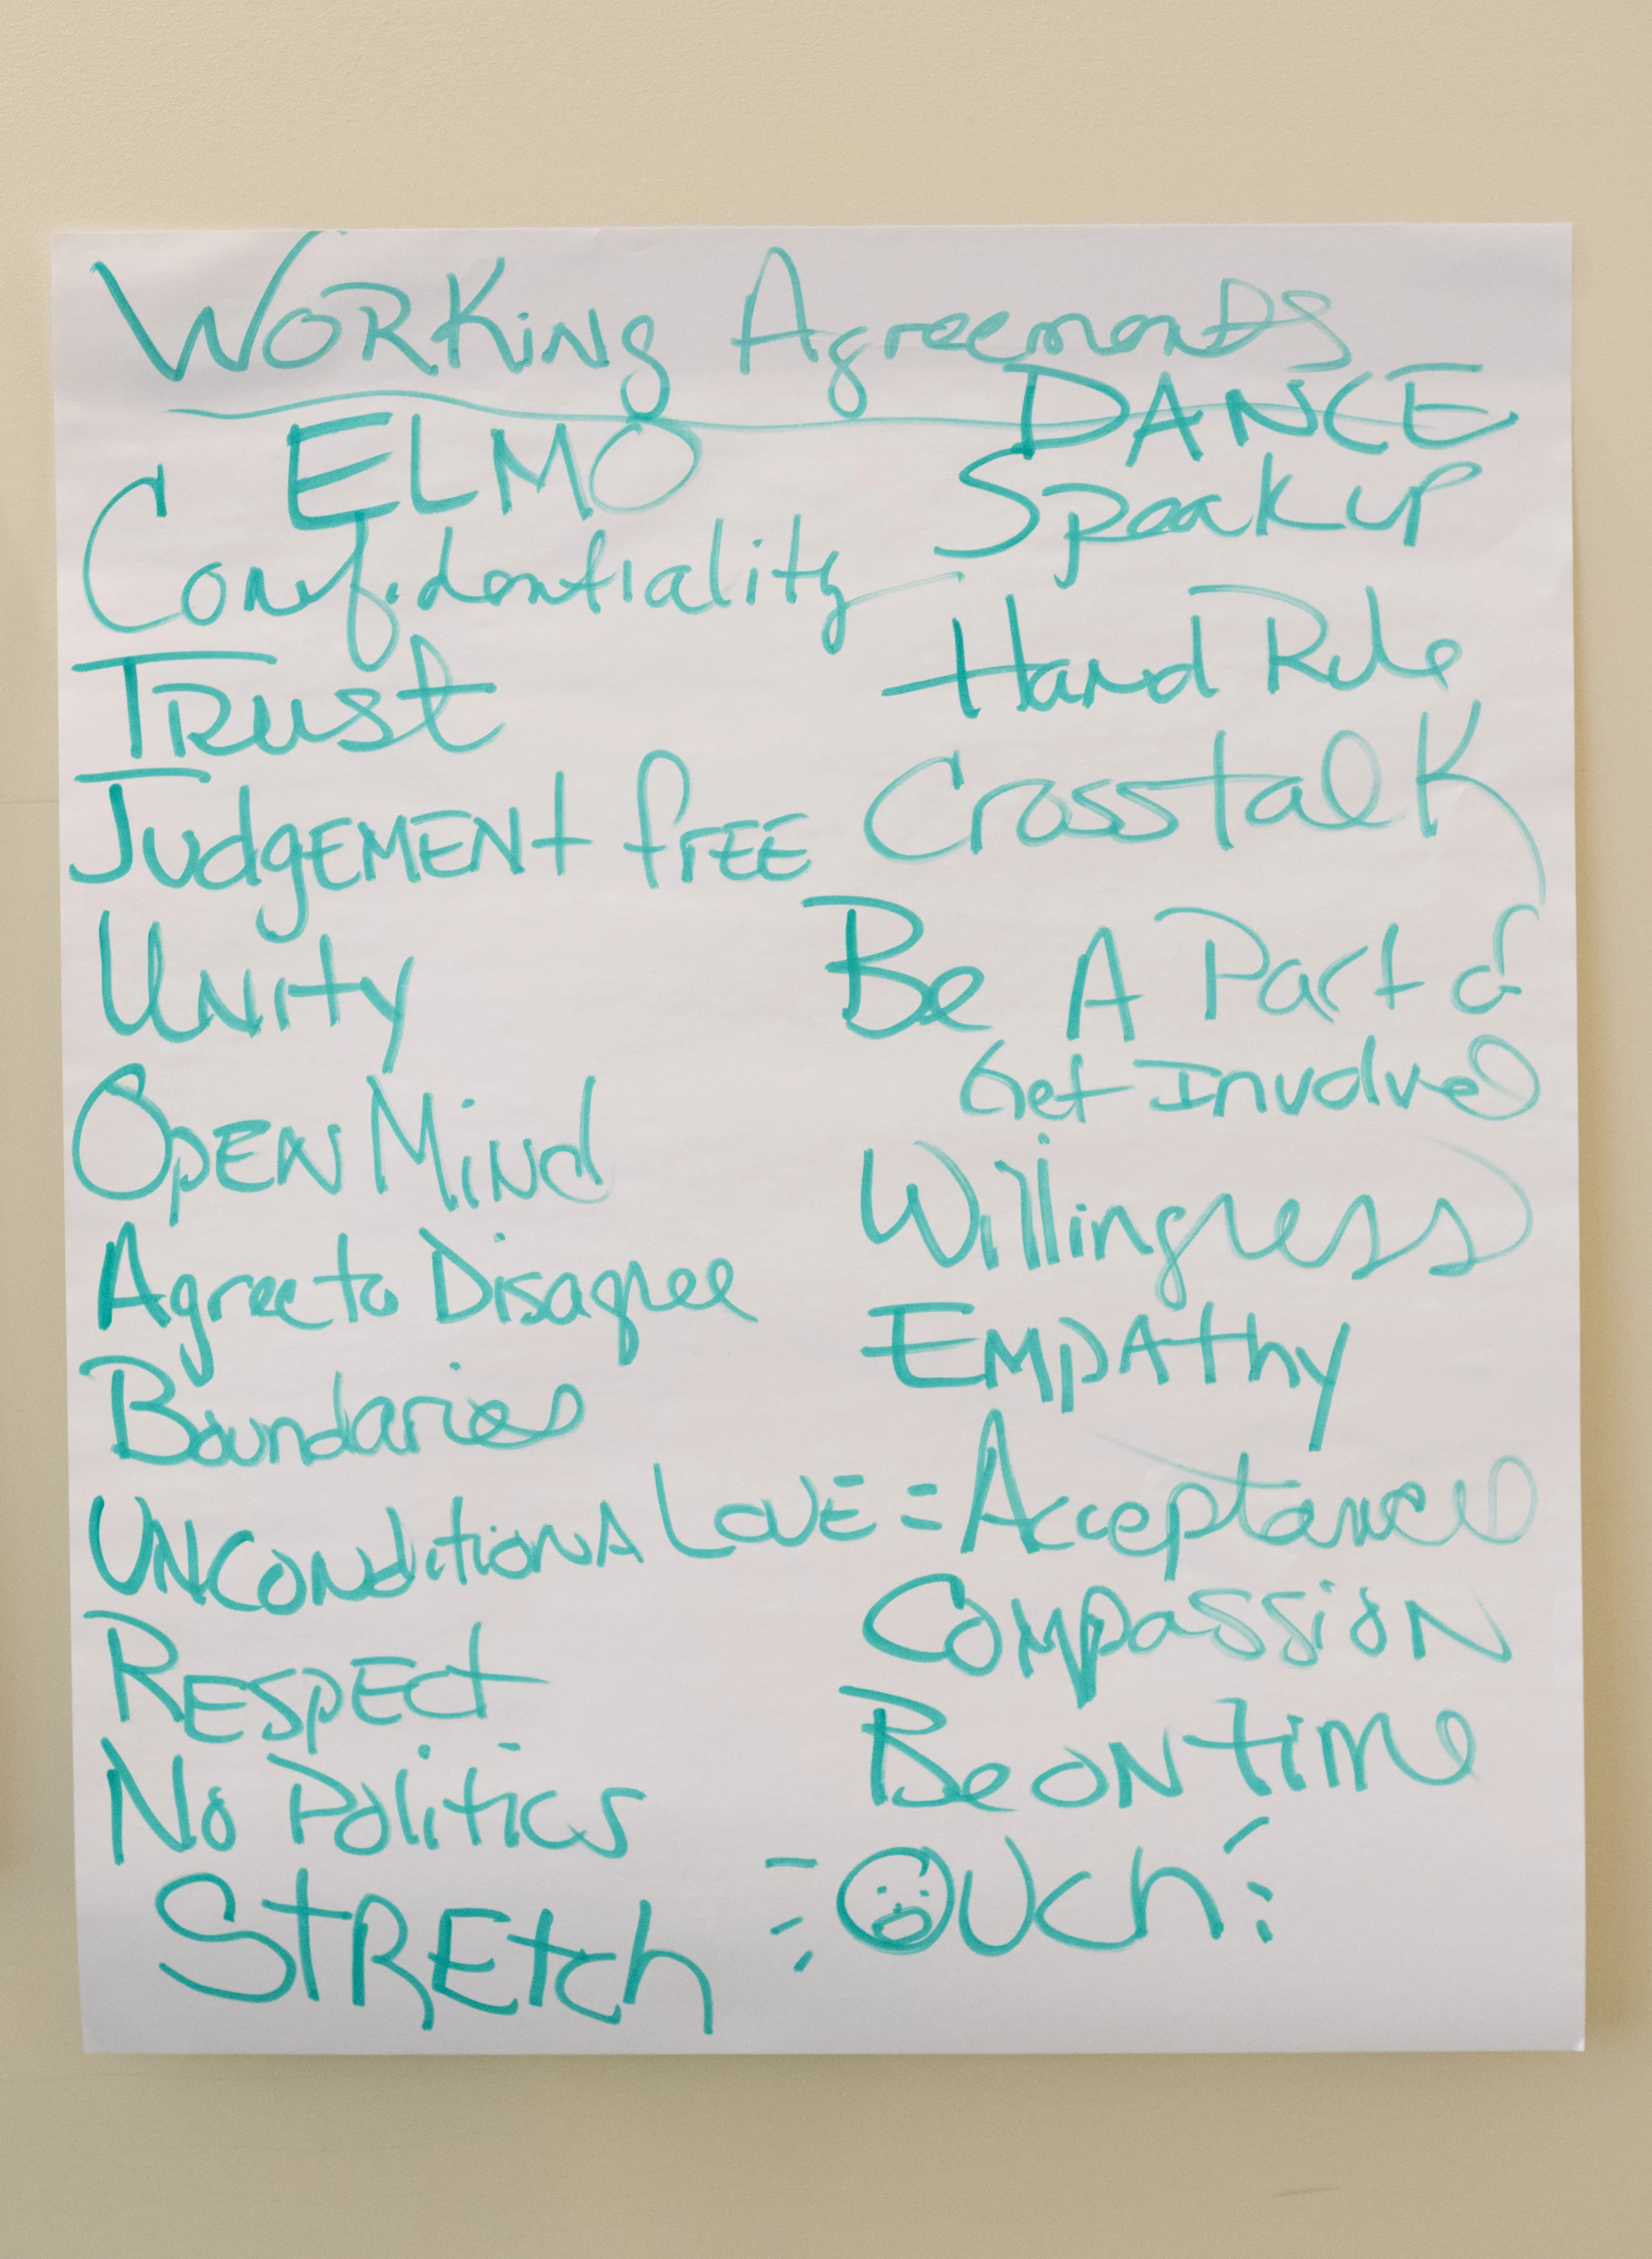 Working Agreements
ELMO
Confidentiality
Trust
Judgement free
Unity
Open Mind
Agree to Disagree
Boundaries
Unconditional Love = Acceptance
Respect
No Politics
Stretch
DANCE
Speak up
Hand Rule
Crosstalk
Be A Part of
Get Involved
Willingness
Empathy
Compassion
Be on time
Ouch